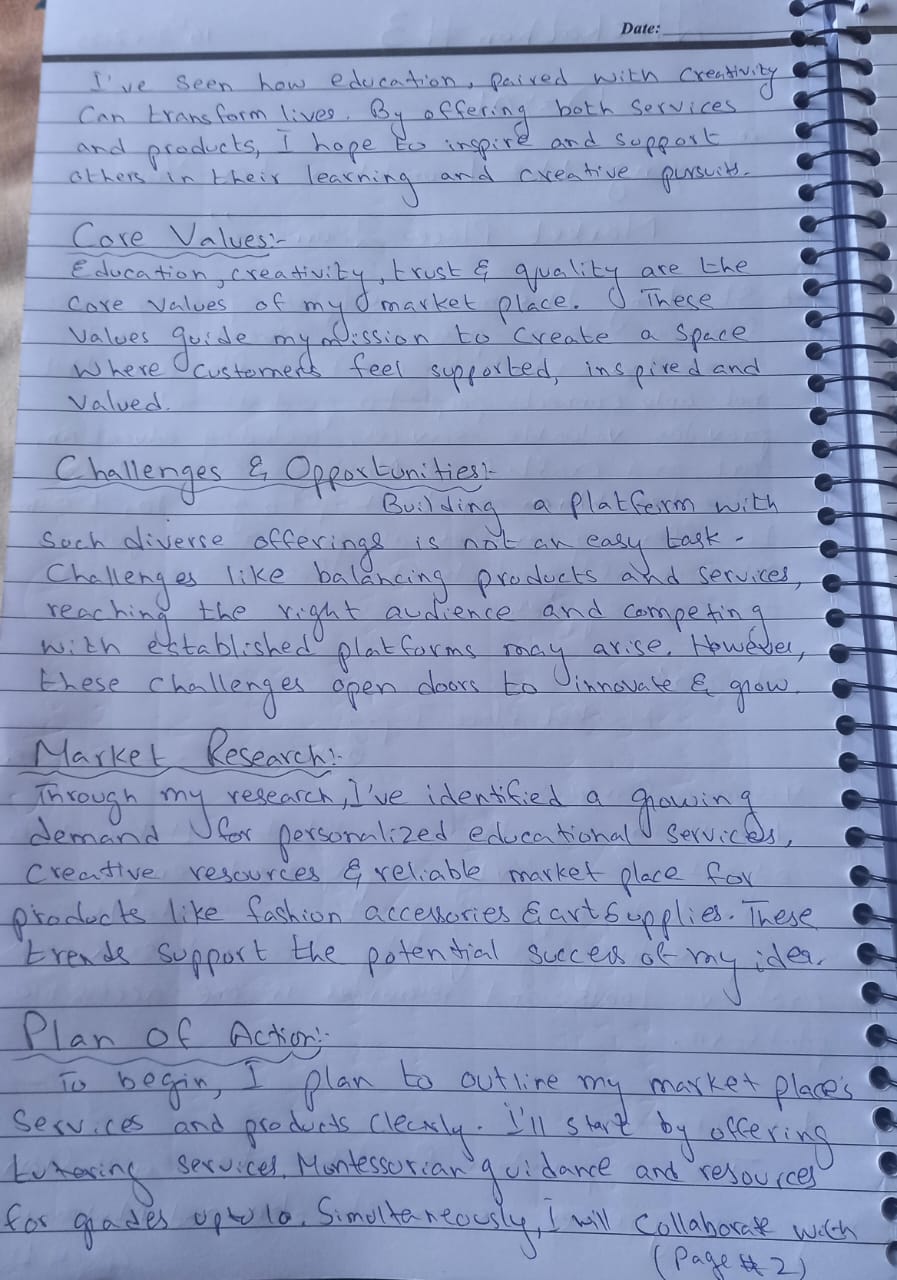 Date:
I've seen how education, paired with creativity
Can transform lives. By offering both services
and products, I hope to inspire and support
others in their learning and creative pursuits.
Core Values:-
Education, creativity, trust & quality are the
core values of my market place. These
values guide my mission to create a space
where customers feel supported, inspired and
valued.
Challenges & Opportunities:-
Building a platform with
such diverse offerings is not an easy task -
Challenges like balancing products and services,
reaching the right audience and competing
with established platforms may arise. However,
these challenges open doors to innovate & grow.
Market Research:-
Through my research, I've identified a growing
demand for personalized educational services,
creative resources & reliable market place for
products like fashion accessories & art supplies. These
trends support the potential success of my idea.
Plan Of Action:-
To begin, I plan to outline my market place's
services and products clearly. I'll start by offering
tutoring services, Montessorian guidance and resources
for grades upto 10. Simultaneously, I will collaborate with
(Page # 2)